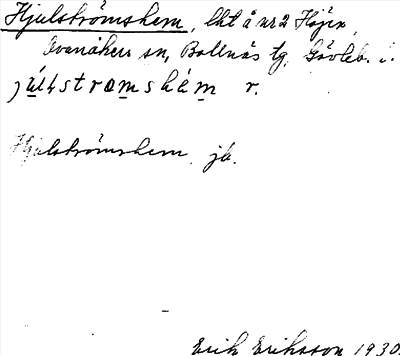 Hjulströmshem, lht å nr 2 Höjen,
Ovanåkers sn, Bollnäs tg, Gävleb. l.
júlstromshèm r.
Hjulströmshem jb.
Erik Eriksson 1930.